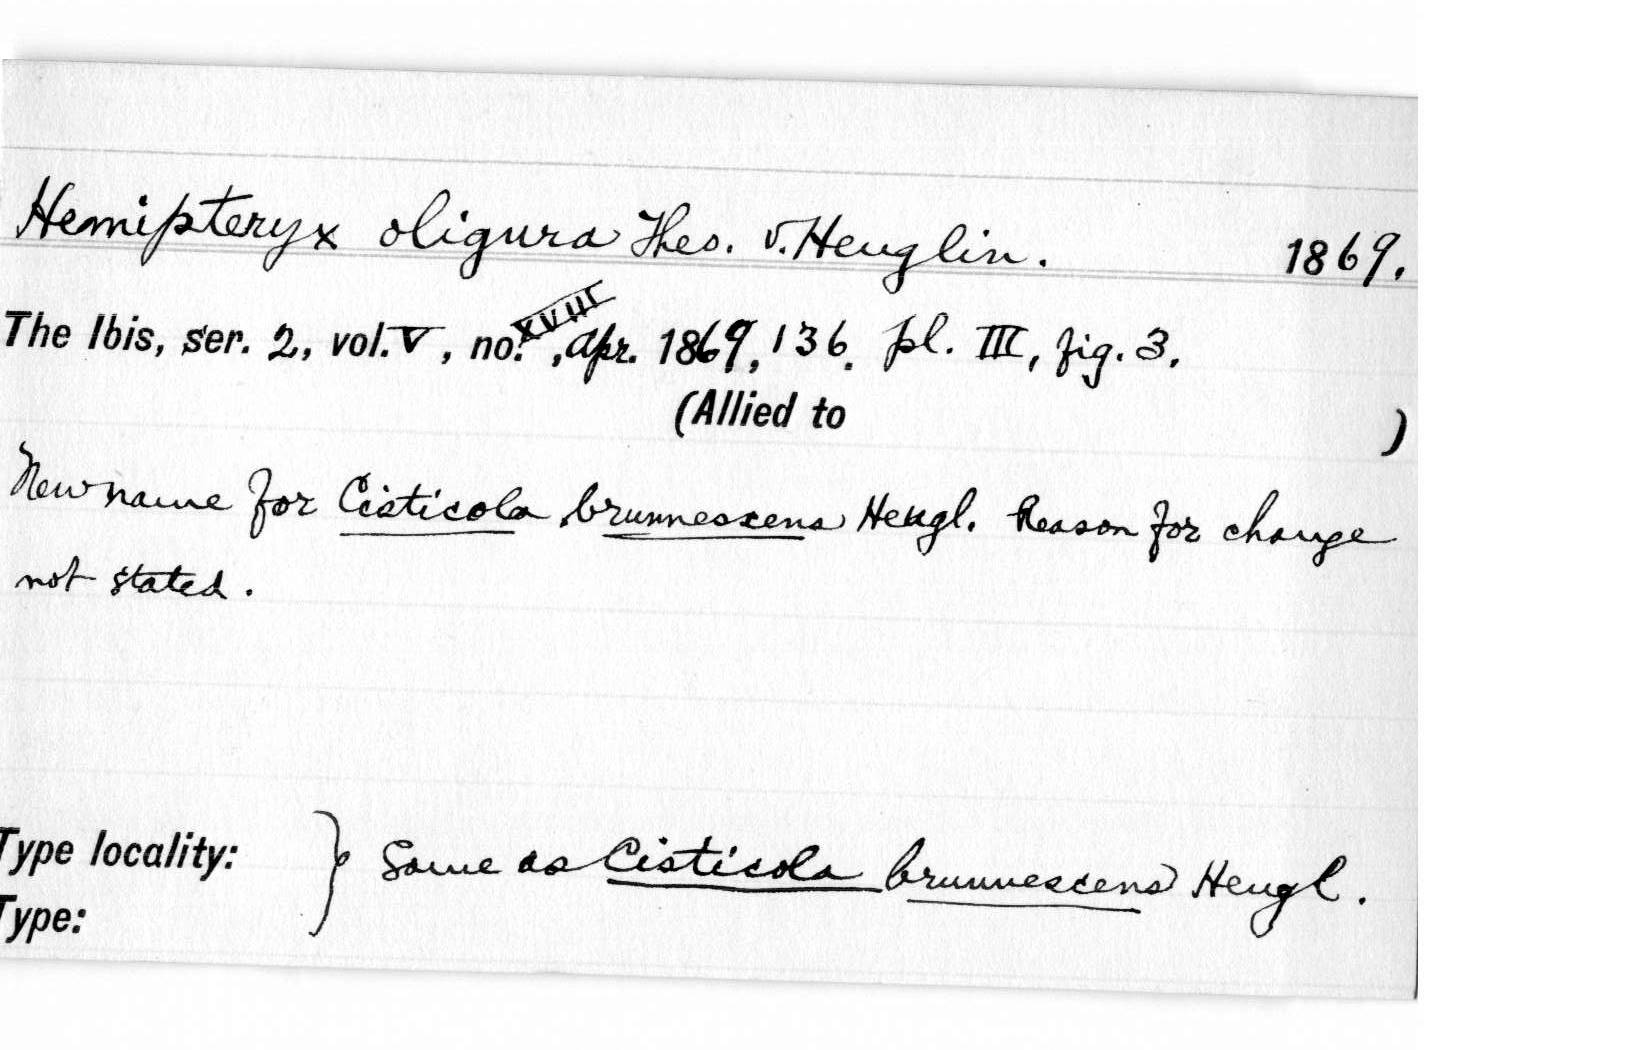 Hemipteryx oligura Theo. v. Heuglin. 1869.
The Ibis, ser. 2, vol. V, no. XVIII, Apr. 1869, 136. pl. III, fig. 3.
(Allied to )
New name for Cisticola brunnescens Heugl. Reason for change
not stated.
Type locality: } Same as Cisticola brunnescens Heugl.
Type: